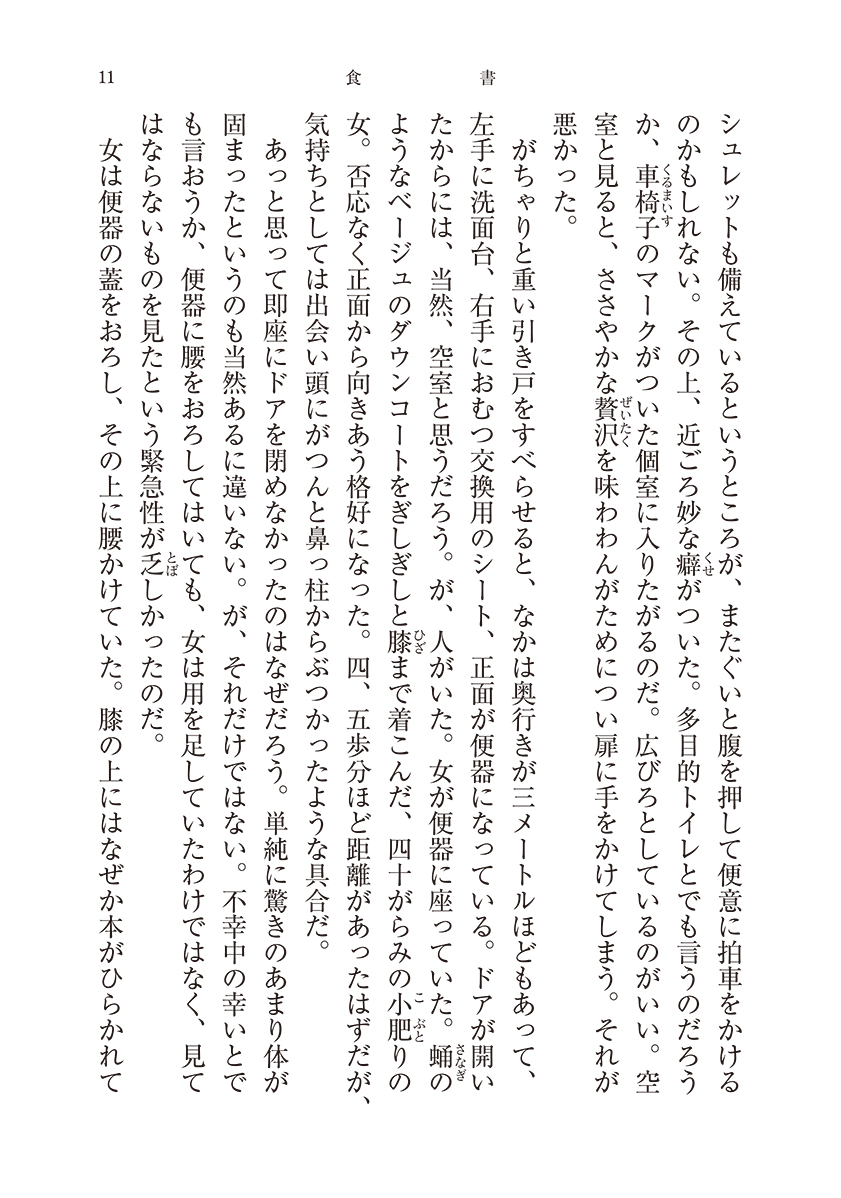 11
書食
シュレットも備えているというところが、またぐいと腹を押して便意に拍車をかける
のかもしれない。その上、近ごろ妙な癖がついた。多目的トイレとでも言うのだろう
か、車椅子のマークがついた個室に入りたがるのだ。広びろとしているのがいい。空
室と見ると、ささやかな贅沢を味わわんがためについ扉に手をかけてしまう。それが
悪かった。
がちゃりと重い引き戸をすべらせると、なかは奥行きが三メートルほどもあって、
左手に洗面台、右手におむつ交換用のシート、正面が便器になっている。ドアが開い
たからには、当然、空室と思うだろう。が、人がいた。女が便器に座っていた。蛹の
ようなベージュのダウンコートをぎしぎしと膝まで着こんだ、四十がらみの小肥りの
女。否応なく正面から向きあう格好になった。四、五歩分ほど距離があったはずだが、
気持ちとしては出会い頭にがつんと鼻っ柱からぶつかったような具合だ。
あっと思って即座にドアを閉めなかったのはなぜだろう。単純に驚きのあまり体が
固まったというのも当然あるに違いない。が、それだけではない。不幸中の幸いとで
も言おうか、便器に腰をおろしてはいても、女は用を足していたわけではなく、見て
はならないものを見たという緊急性が乏しかったのだ。
女は便器の蓋をおろし、その上に腰かけていた。膝の上にはなぜか本がひらかれて
くるまいす
ぜいたく
くせ
ひざ
さなぎ
こぶと
とぼ